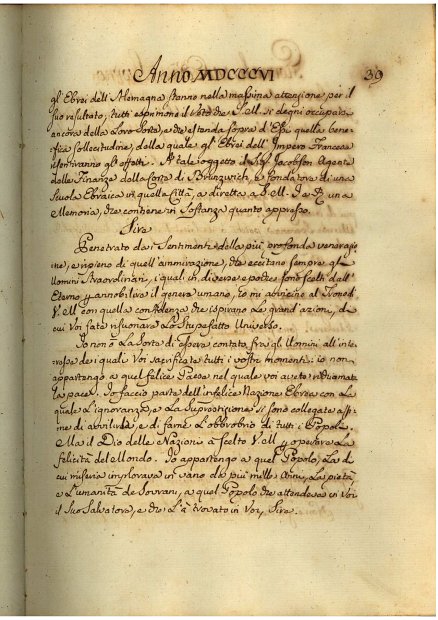 Anno MDCCCVI
39
gl' Ebrei dell' Alemagna stanno nella massima attenzione per il
suo resultato; tutti esprimono il Voto che S. M. si degni occuparsi
ancora della loro Sorte, e che estenda sopra d' Essi quella bene=
fica sollecitudine, della quale gl' Ebrei dell' Impero Francese
risentiranno gli effetti. A tale oggetto Jacobson Agente
delle Finanze della Corte di Brunzwich, e fondatore di una
Scuola Ebraica in quella Città, a diretta a S. M. I. e R. una
Memoria, che contiene in Sostanza quanto appresso.
Sire
Penetrato dai Sentimenti della più profonda venerazio=
ne, e ripieno di quell' ammirazione, che eccitano sempre gl'
Uomini Straordinari, i quali in diverse epoche sono scelti dall'
Eterno p annobilire il genere umano, io mi avvicino al Trono di
V. M. con quella confidenza che ispirano le grandi azioni, di
cui Voi fate risuonare lo stupefatto Universo.
Io non ò la Sorte di essere contato fra gli Uomini all' inte=
resse de i quali Voi sacrificate tutti i vostri momenti: io non
appartengo a quel felice Paese nel quale voi avete richiamata
la pace. Io faccio parte dell' infelice Nazione Ebrea con la
quale l' ignoranza, e la Superstizione si sono collegate assie=
me di avvilirla e di farne l' obbrobrio di tutti i Popoli.
Ma il Dio delle Nazioni à scelto V. M. p operare la
felicità del Mondo. Io appartengo a quel Popolo, la di
cui miseria implorava in vano da più mille Anni, la pietà,
e l' umanità de Sovrani, a quel Popolo che attendeva in Voi
il Suo Salvatore, e che l' à trovato in Voi, Sire.